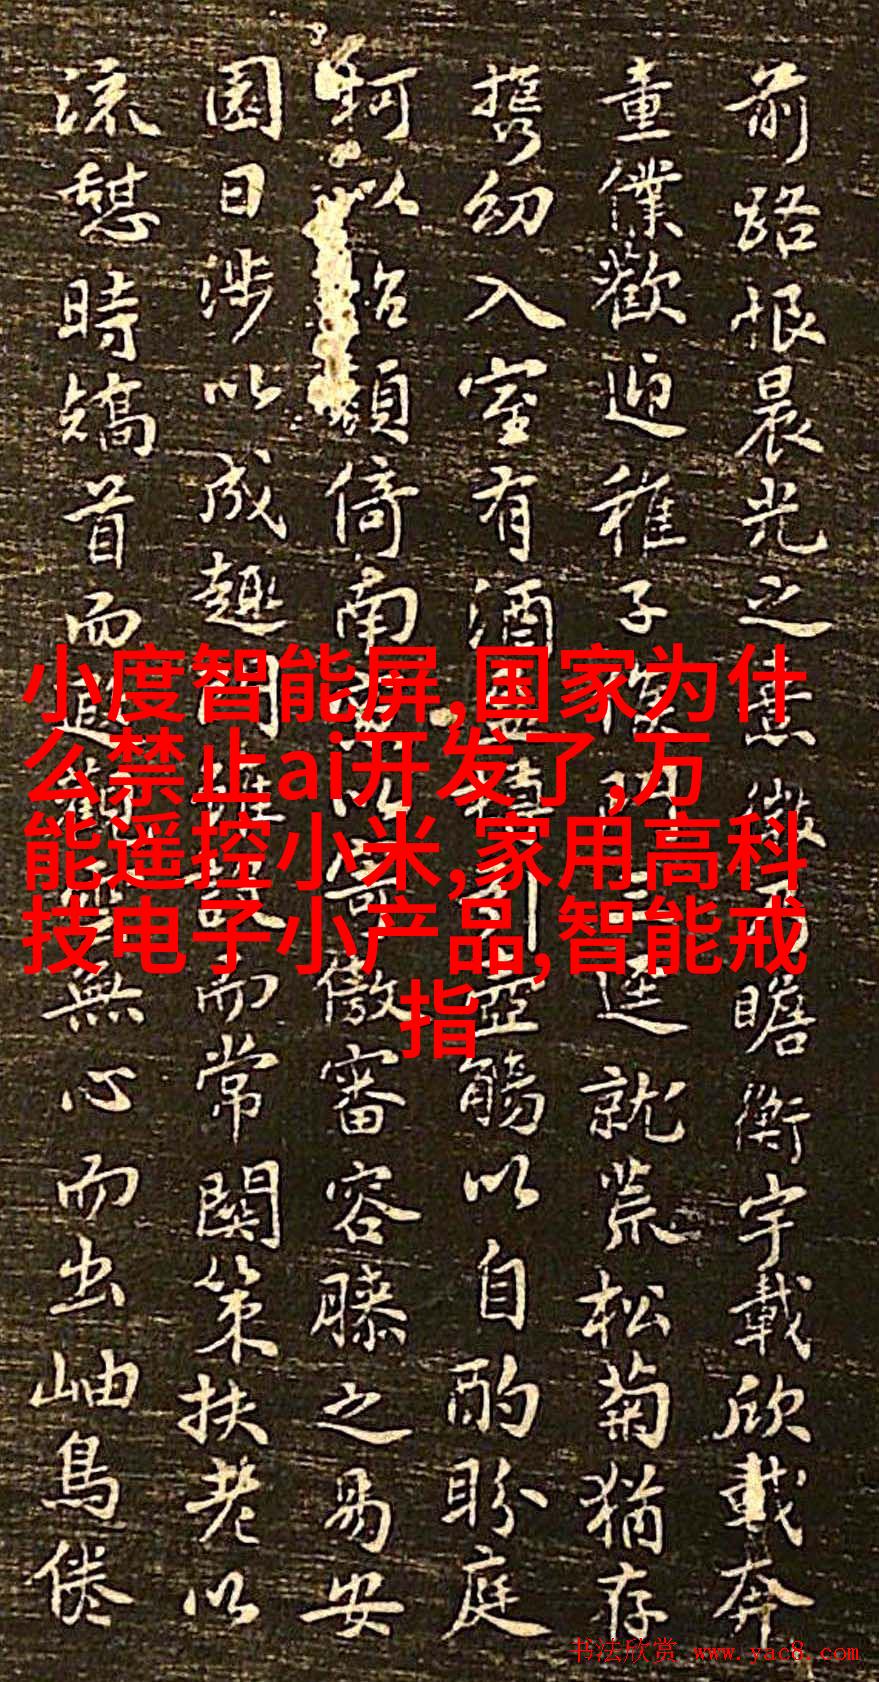 前路恨晨光之熹微乃瞻衡宇載欣載奔
童僕歡迎稚子候門三逕就荒松菊猶存
携幼入室有酒盈樽引壺觴以自酌盼庭
柯以怡顏倚南窗以寄傲審容膝之易安
園日涉以成趣門雖設而常關策扶老以
流憩時矯首而遐觀雲無心而出岫鳥倦
小度智能屏,国家为什
么禁止ai开发了,万
能遥控小米,家用高科
技电子小产品,智能戒
指
书法欣赏 www.yac8.com